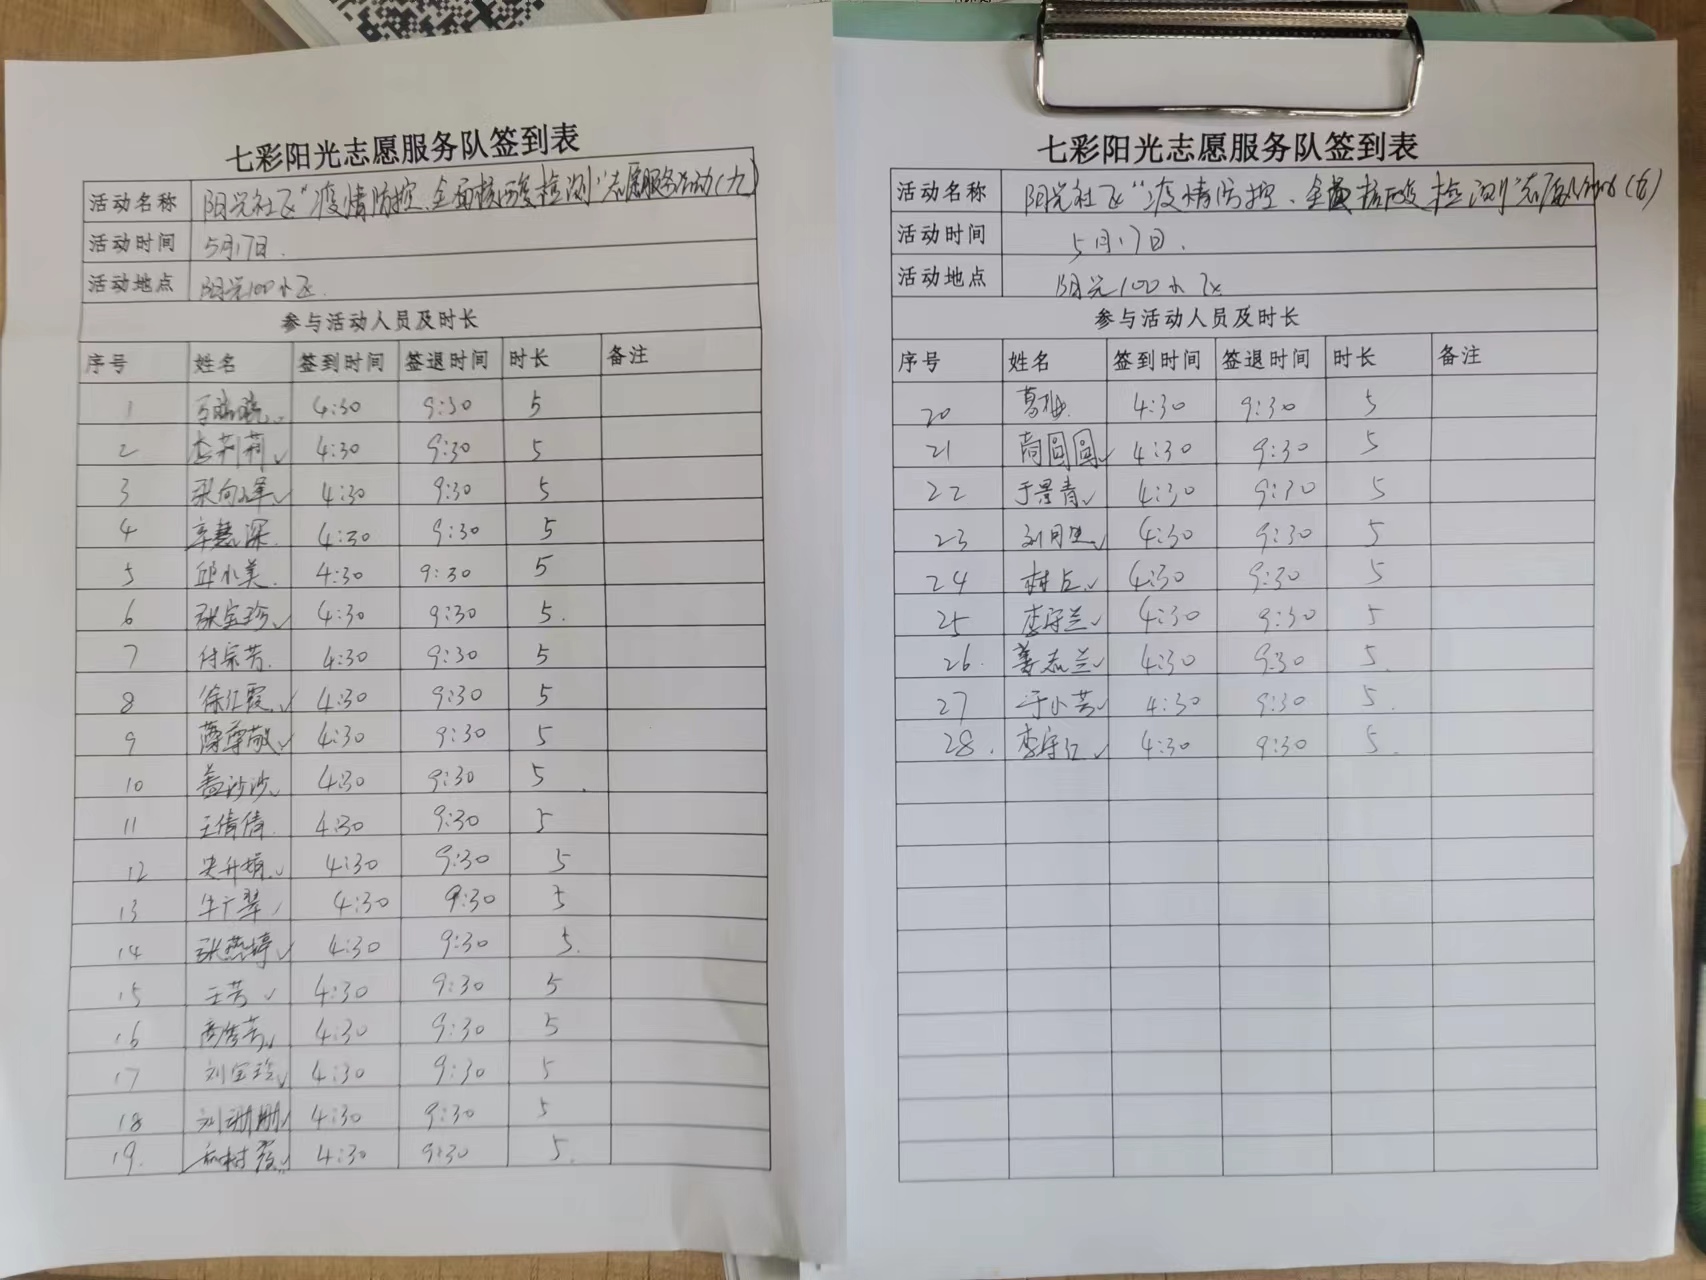 七彩阳光志愿服务队签到表
活动名称 阳光社区“疫情防控、全面核酸检测”志愿服务活动(九)
活动时间 5月17日.
活动地点 阳光100小区.
参与活动人员及时长
序号 姓名 签到时间 签退时间 时长 备注
1 4:30 9:30 5
2 杜莉莉 4:30 9:30 5
3 张向峰 4:30 9:30 5
4 辛慧深 4:30 9:30 5
5 邱小美 4:30 9:30 5
6 张宝珍 4:30 9:30 5.
7 付宗芳 4:30 9:30 5
8 徐红霞 4:30 9:30 5
9 薄尊敬 4:30 9:30 5
10 盖沙沙 4:30 9:30 5
11 王倩倩 4:30 9:30 5
12 4:30 9:30 5
13 牛广翠 4:30 9:30 5
14 张燕婷 4:30 9:30 5.
15 王芳 4:30 9:30 5
16 4:30 9:30 5
17 刘宝玲 4:30 9:30 5
18 刘珊珊 4:30 9:30 5
19. 4:30 9:30 5.
七彩阳光志愿服务队签到表
活动名称 阳光社区“疫情防控、全面核酸检测”志愿服务活动
活动时间 5月17日.
活动地点 阳光100小区
参与活动人员及时长
序号 姓名 签到时间 签退时间 时长 备注
20 4:30 9:30 5
21 高圆圆 4:30 9:30 5
22 于景青 4:30 9:30 5
23 4:30 9:30 5
24 4:30 9:30 5
25 李守兰 4:30 9:30 5
26. 姜志兰 4:30 9:30 5.
27 于小芳 4:30 9:30 5.
28. 李守红 4:30 9:30 5.